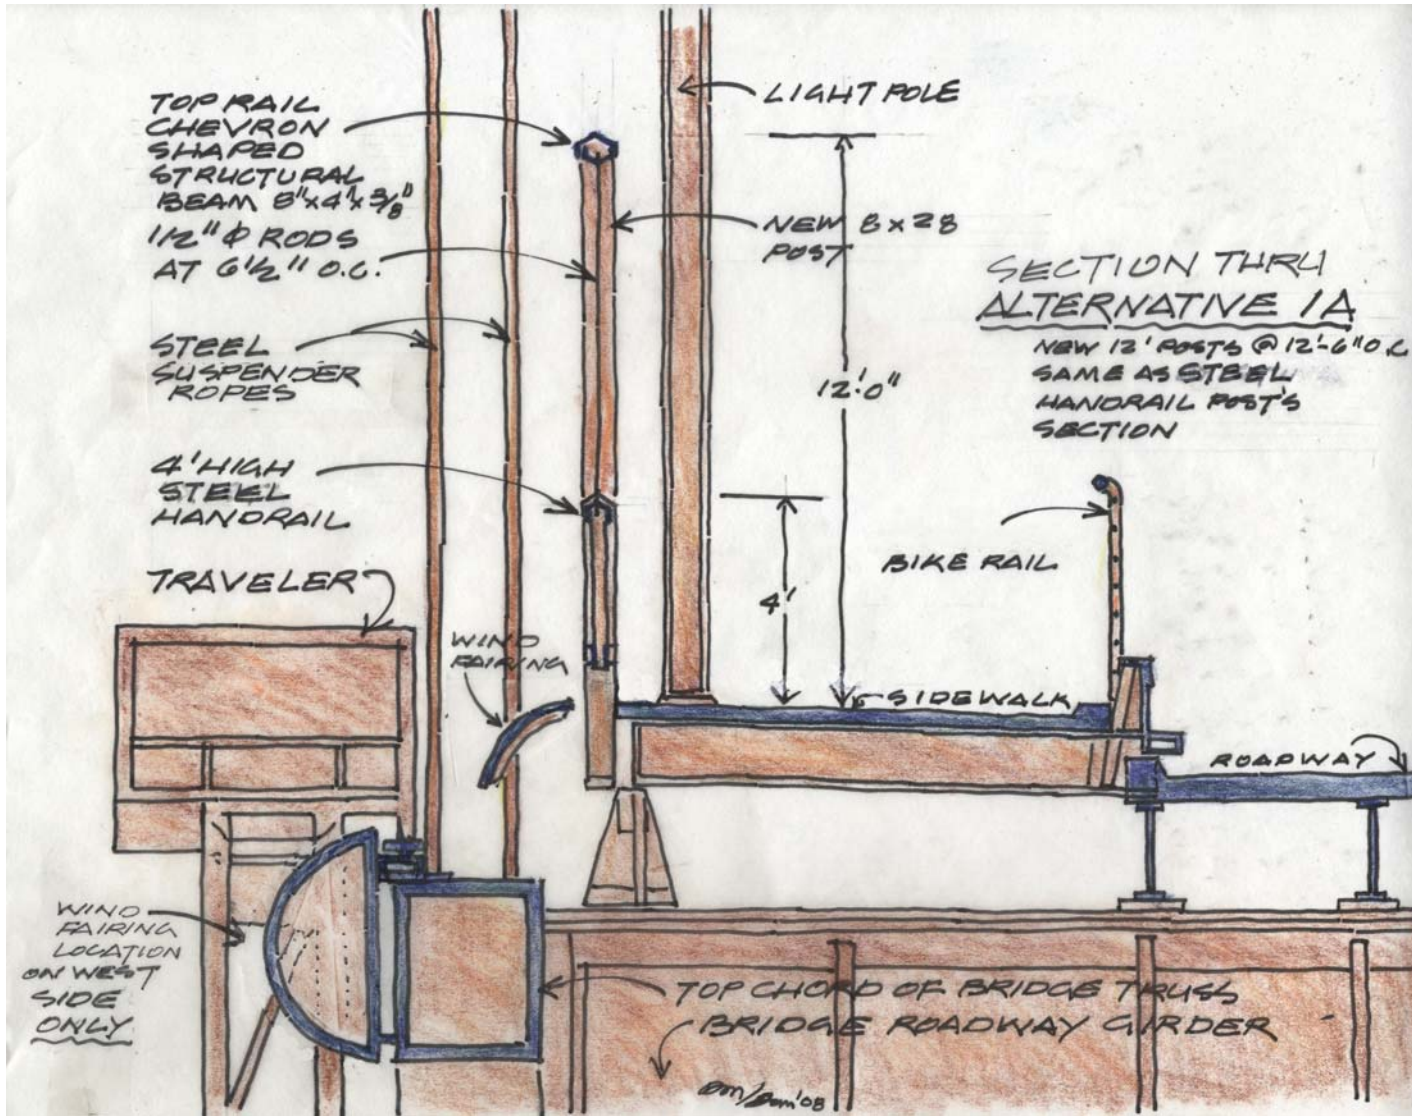 TOP RAIL
CHEVRON
SHAPED
STRUCTURAL
BEAM 8"x4"x3/8"
1 1/2" Φ RODS
AT 6 1/2" O.C.
STEEL
SUSPENDER
ROPES
4' HIGH
STEEL
HANDRAIL
TRAVELER
WIND
FAIRING
WIND
FAIRING
LOCATION
ON WEST
SIDE
ONLY
LIGHT POLE
NEW 8x28
POST
12'-0"
4'
SECTION THRU
ALTERNATIVE 1A
NEW 12' POSTS @ 12'-6" O.C
SAME AS STEEL
HANDRAIL POST'S
SECTION
BIKE RAIL
SIDEWALK
ROADWAY
TOP CHORD OF BRIDGE TRUSS
BRIDGE ROADWAY GIRDER
'08